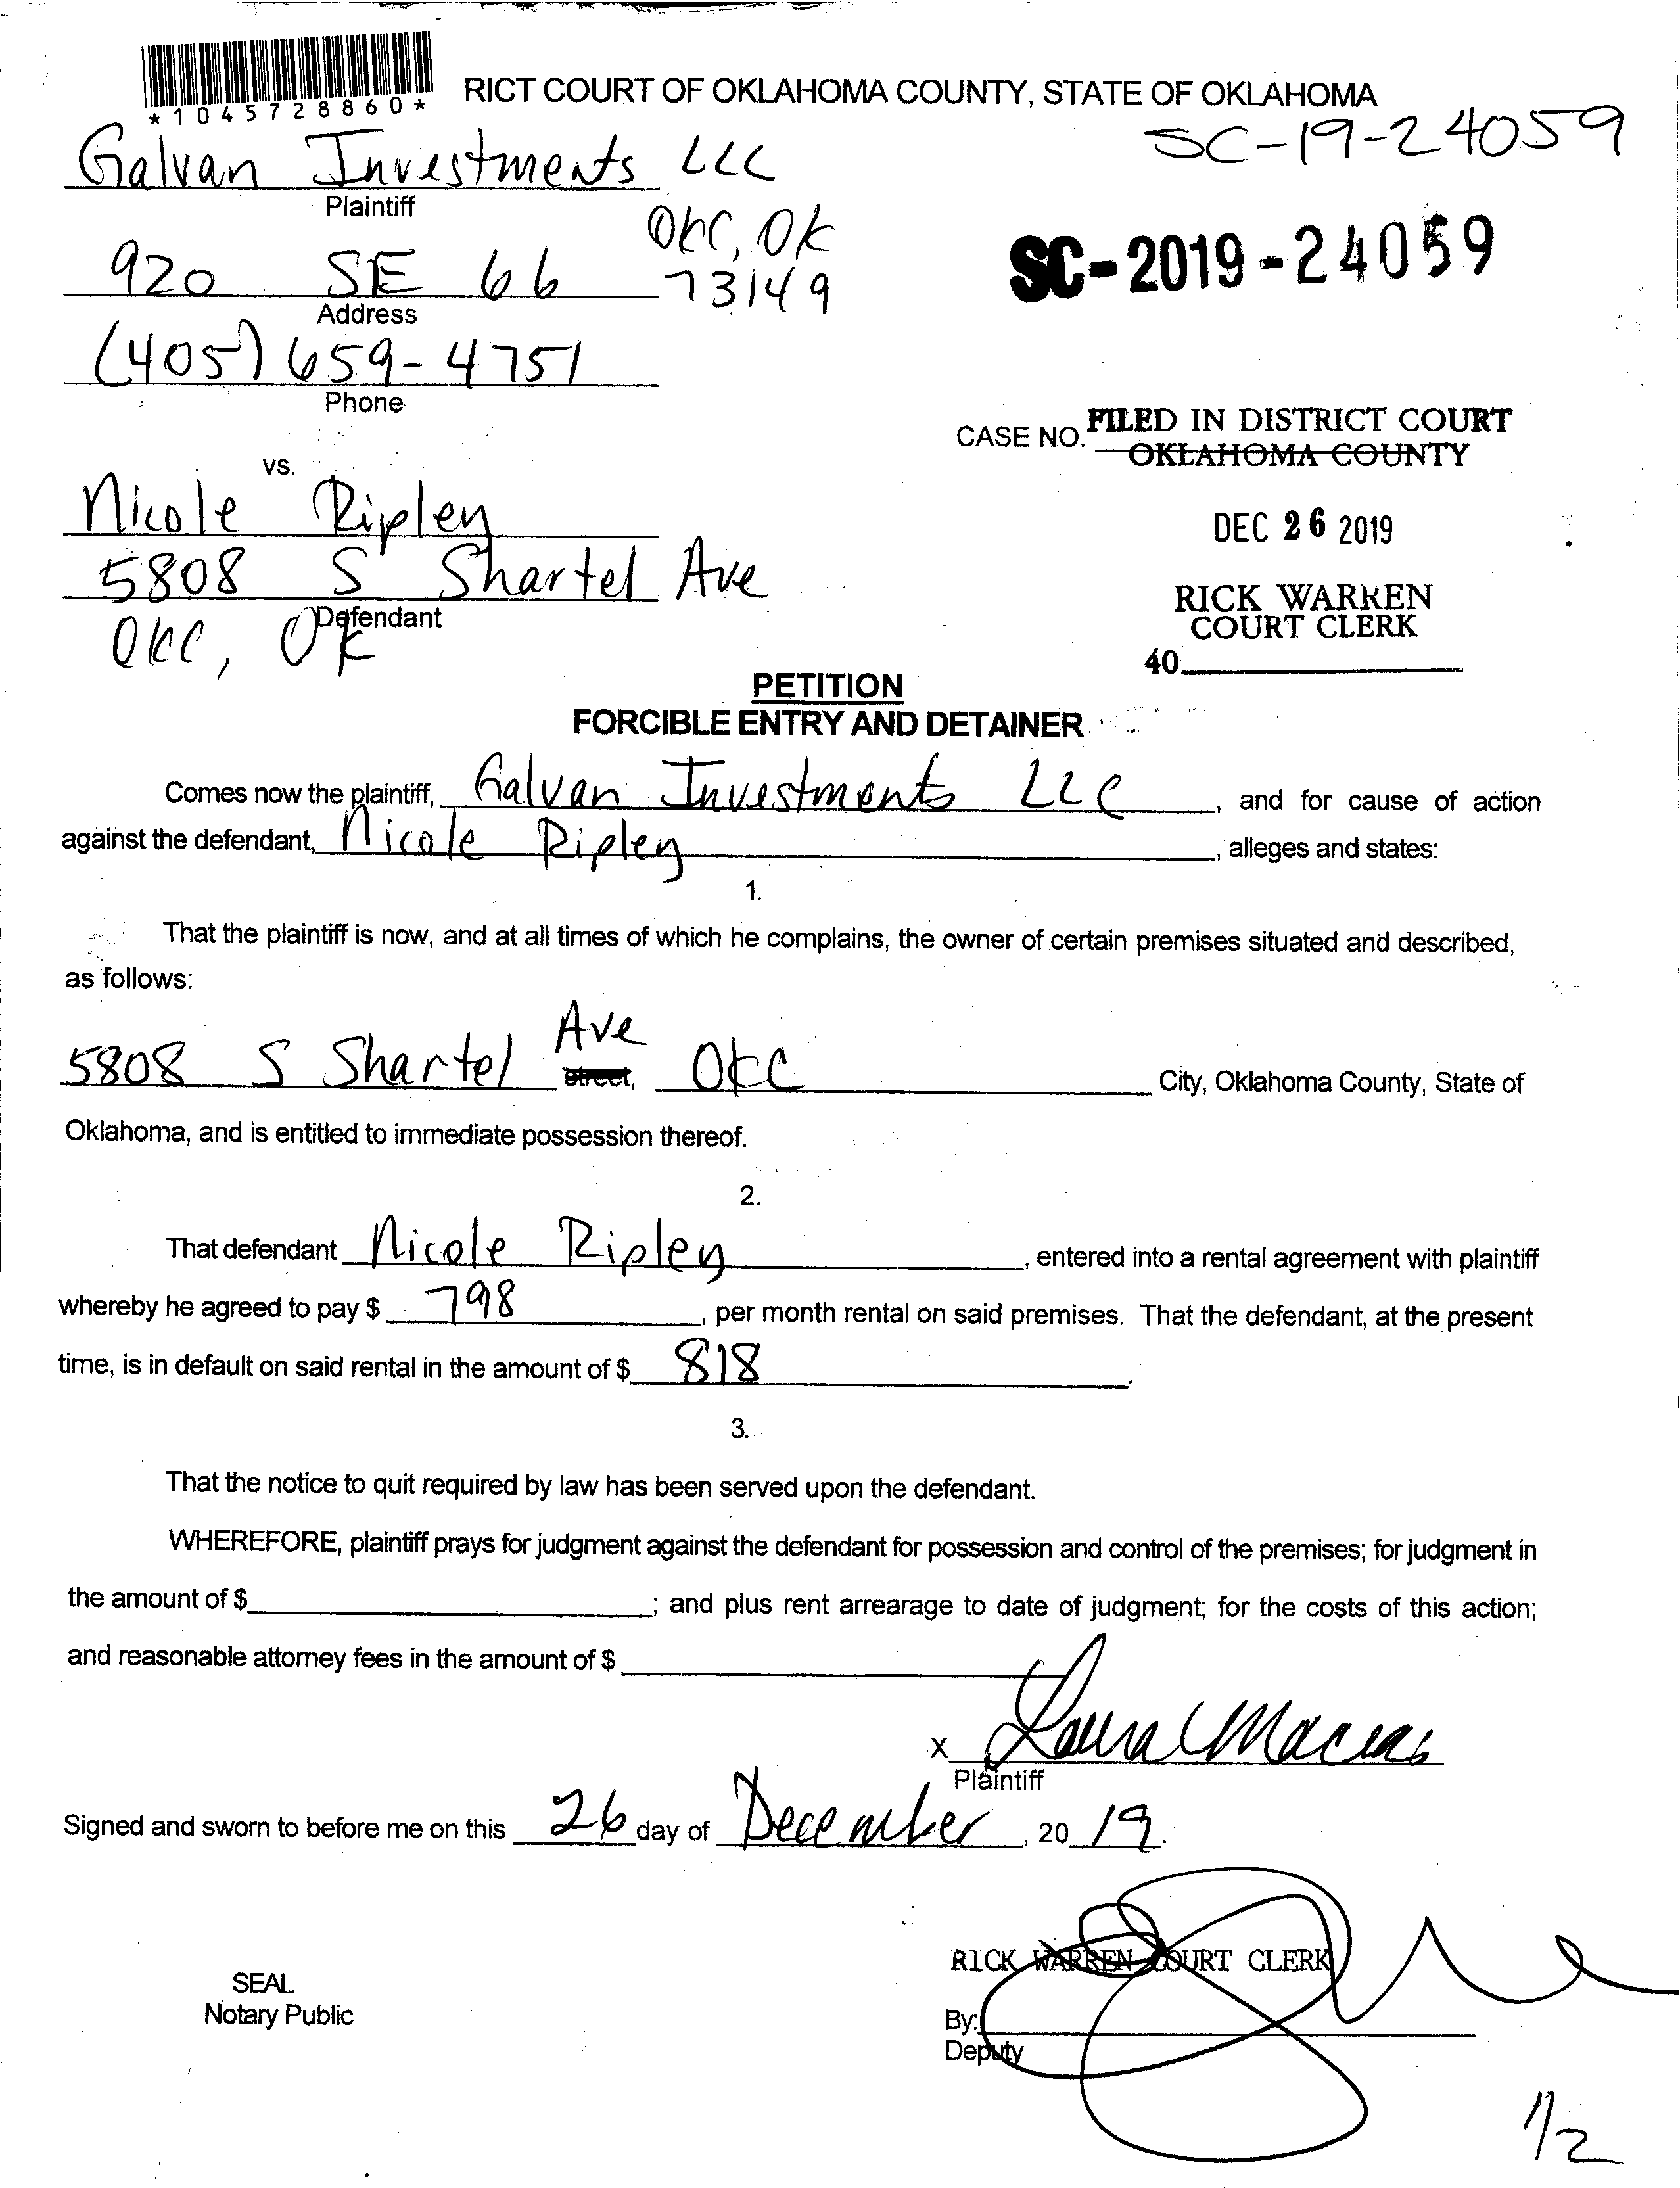 *1045728860*
RICT COURT OF OKLAHOMA COUNTY, STATE OF OKLAHOMA
SC-19-24059
Galvan Investments LLC
Plaintiff
OKC, OK
SC-2019-24059
920 SE 66 73149
Address
(405) 659-4751
Phone
CASE NO. FILED IN DISTRICT COURT
OKLAHOMA COUNTY
vs.
Nicole Ripley
DEC 26 2019
5808 S Shartel Ave
RICK WARREN
Defendant
COURT CLERK
OKC, OK
40
PETITION
FORCIBLE ENTRY AND DETAINER
Comes now the plaintiff, Galvan Investments LLC, and for cause of action
against the defendant, Nicole Ripley, alleges and states:
1.
That the plaintiff is now, and at all times of which he complains, the owner of certain premises situated and described,
as follows:
5808 S Shartel Ave street, OKC City, Oklahoma County, State of
Oklahoma, and is entitled to immediate possession thereof.
2.
That defendant Nicole Ripley, entered into a rental agreement with plaintiff
whereby he agreed to pay $ 798, per month rental on said premises. That the defendant, at the present
time, is in default on said rental in the amount of $ 818.
3.
That the notice to quit required by law has been served upon the defendant.
WHEREFORE, plaintiff prays for judgment against the defendant for possession and control of the premises; for judgment in
the amount of $ ; and plus rent arrearage to date of judgment; for the costs of this action;
and reasonable attorney fees in the amount of $
X Laura Macias
Plaintiff
Signed and sworn to before me on this 26 day of December, 2019.
RICK WARREN COURT CLERK
SEAL
Notary Public
By:
Deputy
1/2